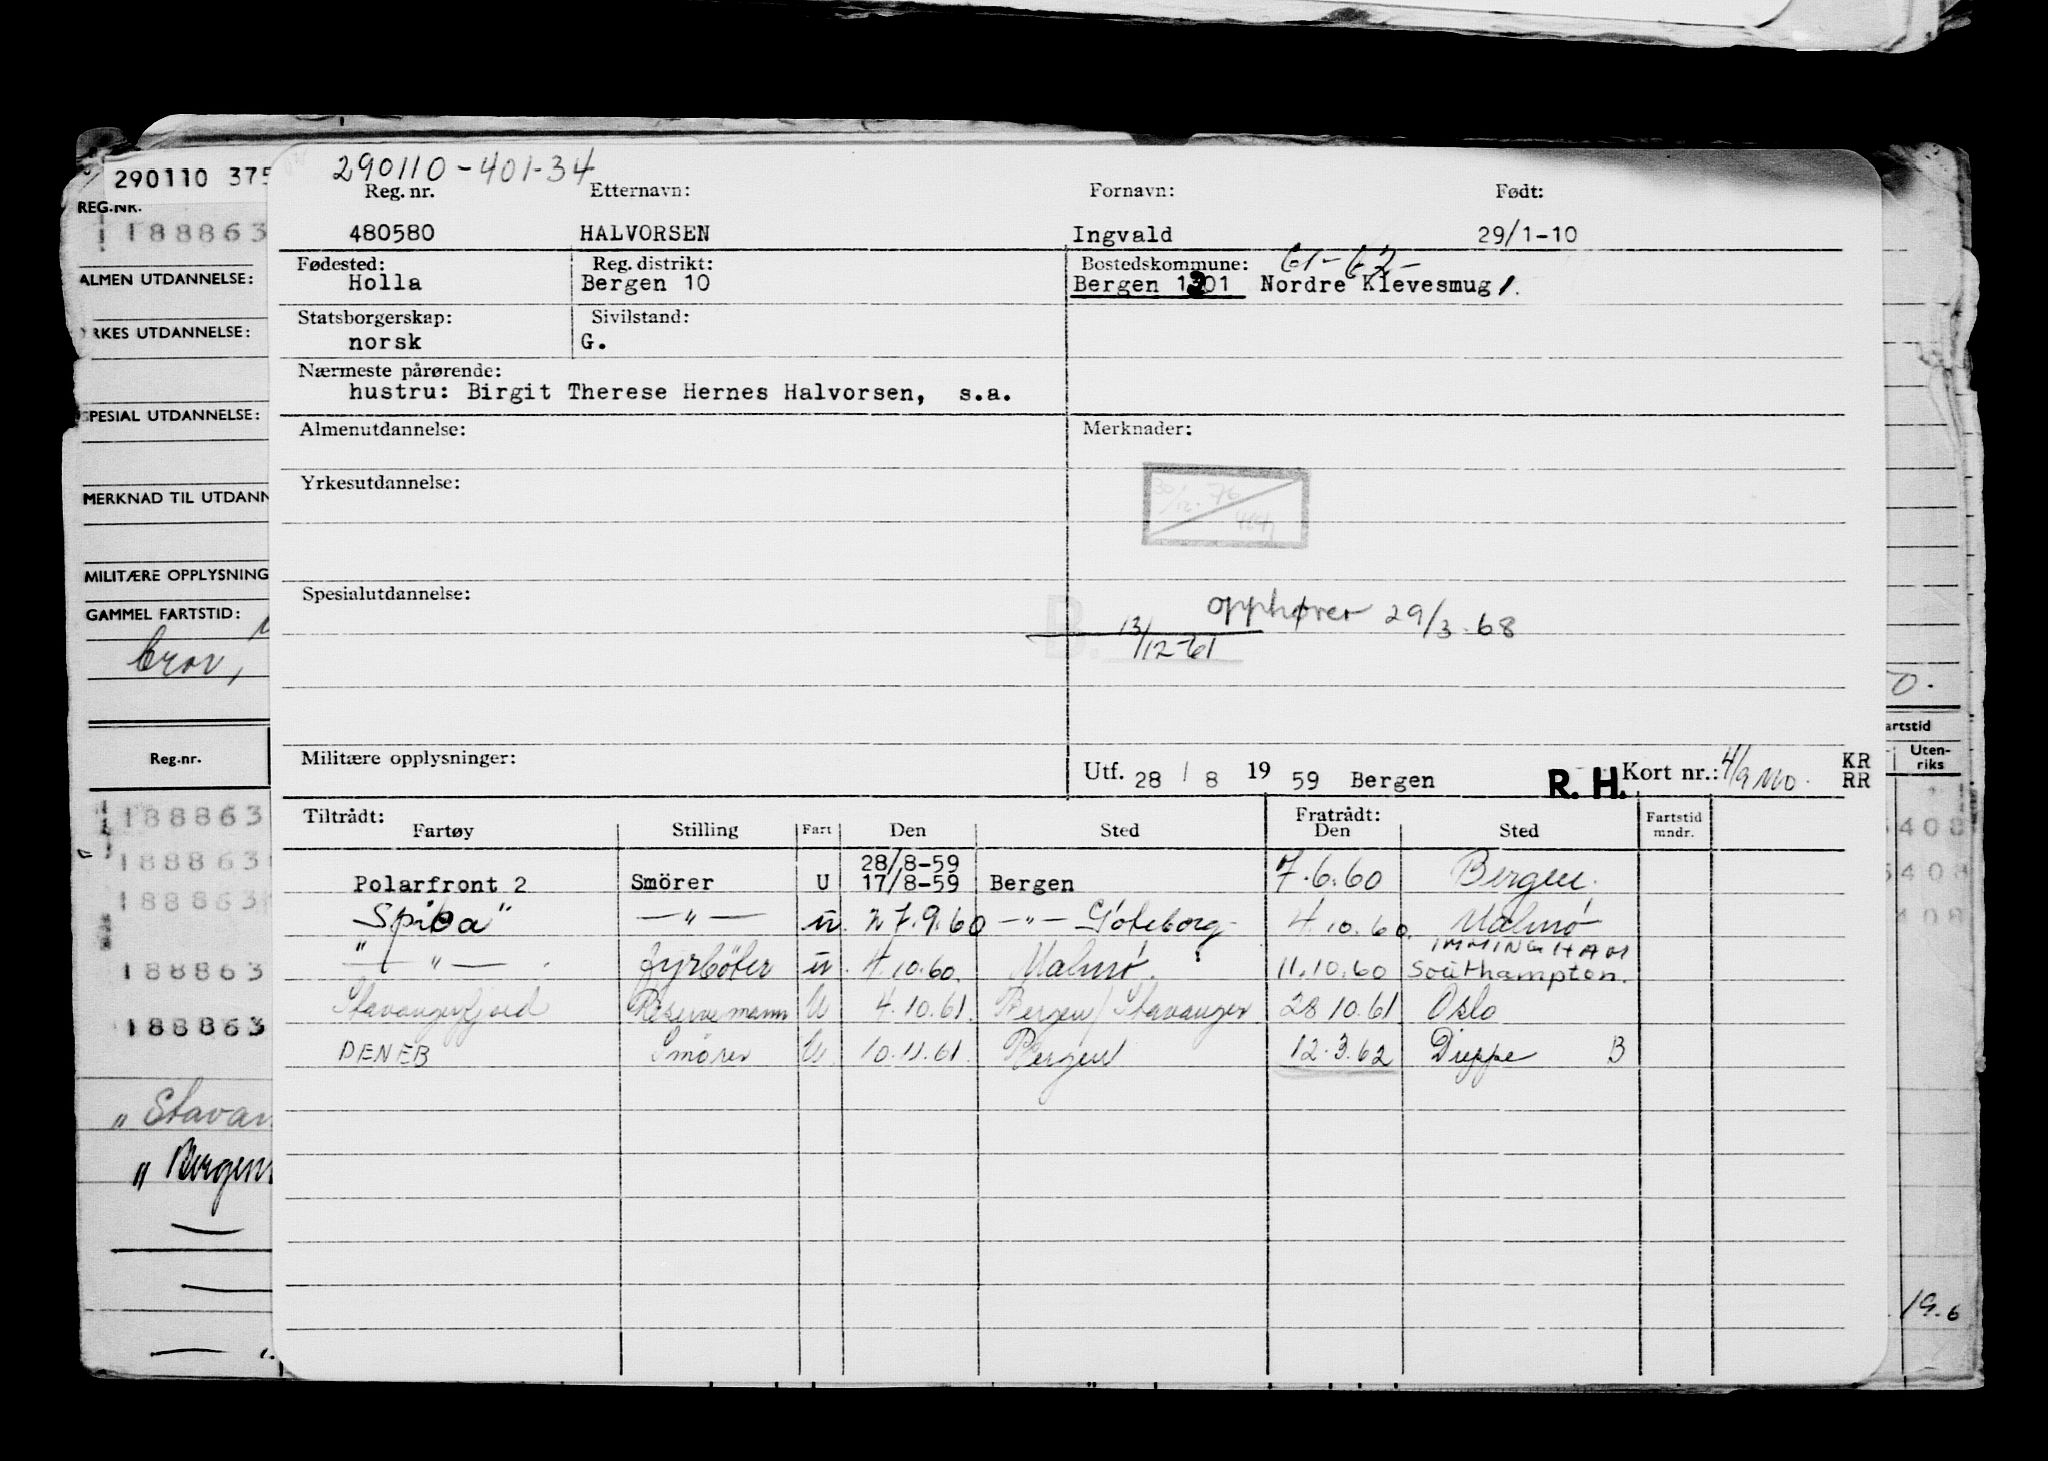 290110 375
290110-401-34
Reg. nr. Etternavn: Fornavn: Født:
REG.NR.
188863
480580 HALVORSEN Ingvald 29/1-10
Fødested: Reg. distrikt: Bostedskommune: 61-62-
Holla Bergen 10 Bergen 1301 Nordre Klevesmug 1.
ALMEN UTDANNELSE:
Statsborgerskap: Sivilstand:
norsk G.
YRKES UTDANNELSE:
Nærmeste pårørende:
hustru: Birgit Therese Hernes Halvorsen, s.a.
SPESIAL UTDANNELSE:
Almenutdannelse: Merknader:
Yrkesutdannelse:
30/12-76
MERKNAD TIL UTDANN
MILITÆRE OPPLYSNING
Spesialutdannelse:
opphører 29/3-68
B. 13/12-61
GAMMEL FARTSTID:
Militære opplysninger:
Utf. 28 / 8 19 59 Bergen R. H. Kort nr.: KR
RR
Reg.nr.
artstid
Uten-
riks
Tiltrådt: Fratrådt: Fartstid
Fartøy Stilling Fart Den Sted Den Sted mndr.
28/8-59
Polarfront 2 Smörer U 17/8-59 Bergen 7.6.60 Bergen.
Spica" —"— u. 27.9.60 —"— Göteborg 4.10.60. Malmø
IMMINGHAM
"—"— . fyrbøter u. 4.10.60. Malmø. ? 11.10.60 Southampton.
Stavangerfjord Reservemann U 4.10.61. Bergen/Stavanger 28 10.61 Oslo
DENEB Smörer U. 10.11.61. Bergen 12.3.62 Dieppe B
188863
188863
188863
188863
188863
408
408
408
" Stavan
" Bergen
19.6